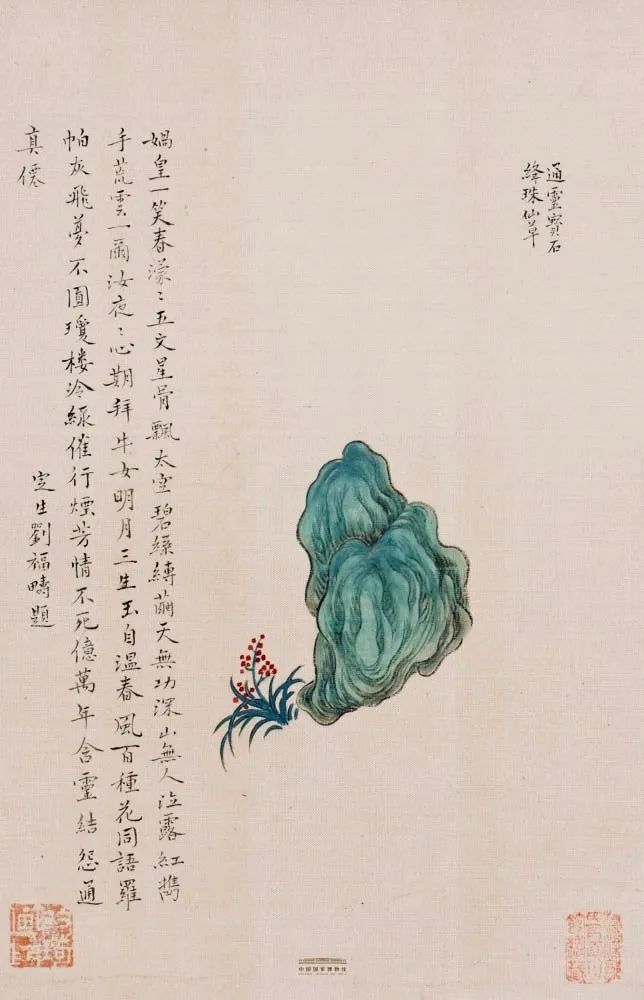 通靈寶石
絳珠仙草
媧皇一笑春濛〻五文星骨飄太空碧絲縛繭天無功深山無人泣露紅鵑
手荒雲一爾汝夜〻心期拜牛女明月三生玉自溫春風百種花同語羅
帕灰飛夢不圓瓊樓冷綠催行煙芳情不死億萬年含靈結怨通
真僊
定生劉福疇題
中国国家博物馆